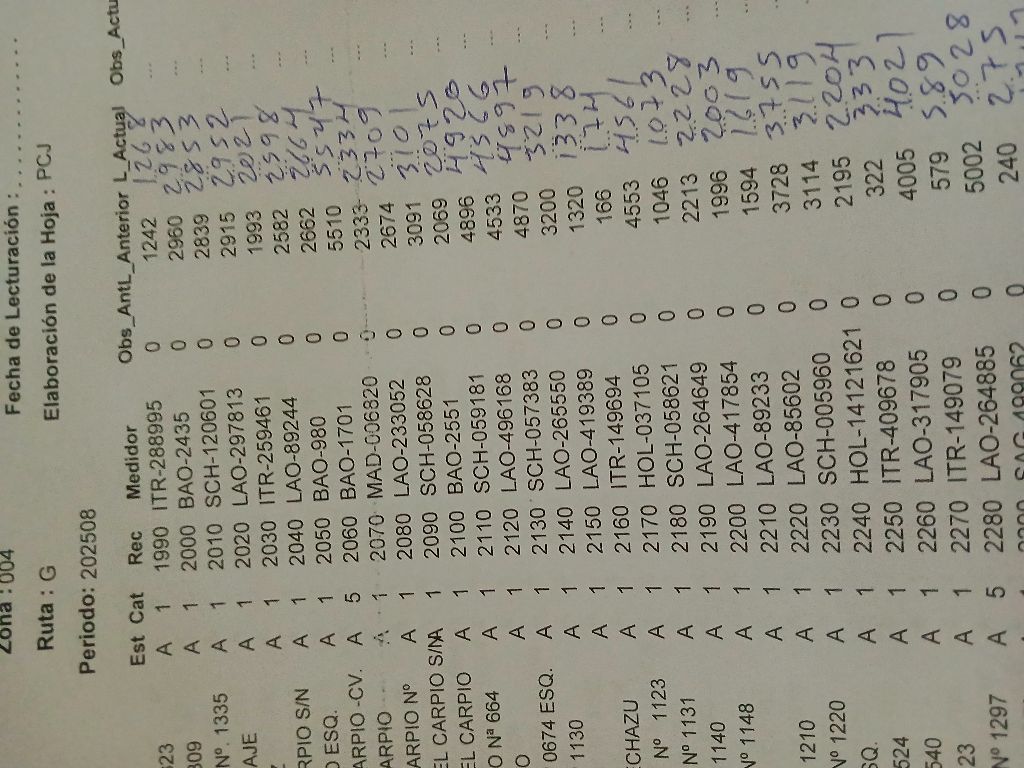 Zona : 004 Fecha de Lecturación : ....................
Ruta : G Elaboración de la Hoja : PCJ
Periodo: 202508
Est Cat Rec Medidor Obs_AntL_Anterior L_Actual Obs_Actu
323 A 1 1990 ITR-288995 0 1242 1268 ...
309 A 1 2000 BAO-2435 0 2960 2983 ...
Nº. 1335 A 1 2010 SCH-120601 0 2839 2853 ...
AJE A 1 2020 LAO-297813 0 2915 2952 ...
A 1 2030 ITR-259461 0 1993 2021 ...
RPIO S/N A 1 2040 LAO-89244 0 2582 2598 ...
O ESQ. A 1 2050 BAO-980 0 2662 2664 ...
ARPIO -CV. A 5 2060 BAO-1701 0 5510 5547 ...
ARPIO A 1 2070 MAD-006820 0 2333 2334 ...
ARPIO Nº A 1 2080 LAO-233052 0 2674 2709 ...
EL CARPIO S/N A 1 2090 SCH-058628 0 3091 3101 ...
EL CARPIO A 1 2100 BAO-2551 0 2069 2075 ...
O Nª 664 A 1 2110 SCH-059181 0 4896 4920 ...
O A 1 2120 LAO-496168 0 4533 4566 ...
0674 ESQ. A 1 2130 SCH-057383 0 4870 4897 ...
1130 A 1 2140 LAO-265550 0 3200 3219 ...
A 1 2150 LAO-419389 0 1320 1338 ...
ECHAZU A 1 2160 ITR-149694 0 166 174 ...
Nº 1123 A 1 2170 HOL-037105 0 4553 4561 ...
Nº 1131 A 1 2180 SCH-058621 0 1046 1073 ...
1140 A 1 2190 LAO-264649 0 2213 2228 ...
Nº 1148 A 1 2200 LAO-417854 0 1996 2003 ...
A 1 2210 LAO-89233 0 1594 1619 ...
1210 A 1 2220 LAO-85602 0 3728 3755 ...
Nº 1220 A 1 2230 SCH-005960 0 3114 3119 ...
SQ. A 1 2240 HOL-14121621 0 2195 2204
524 A 1 2250 ITR-409678 0 322 333
540 A 1 2260 LAO-317905 0 4005 4021
23 A 1 2270 ITR-149079 0 579 589
Nº 1297 A 5 2280 LAO-264885 0 5002 5028
0 240 275